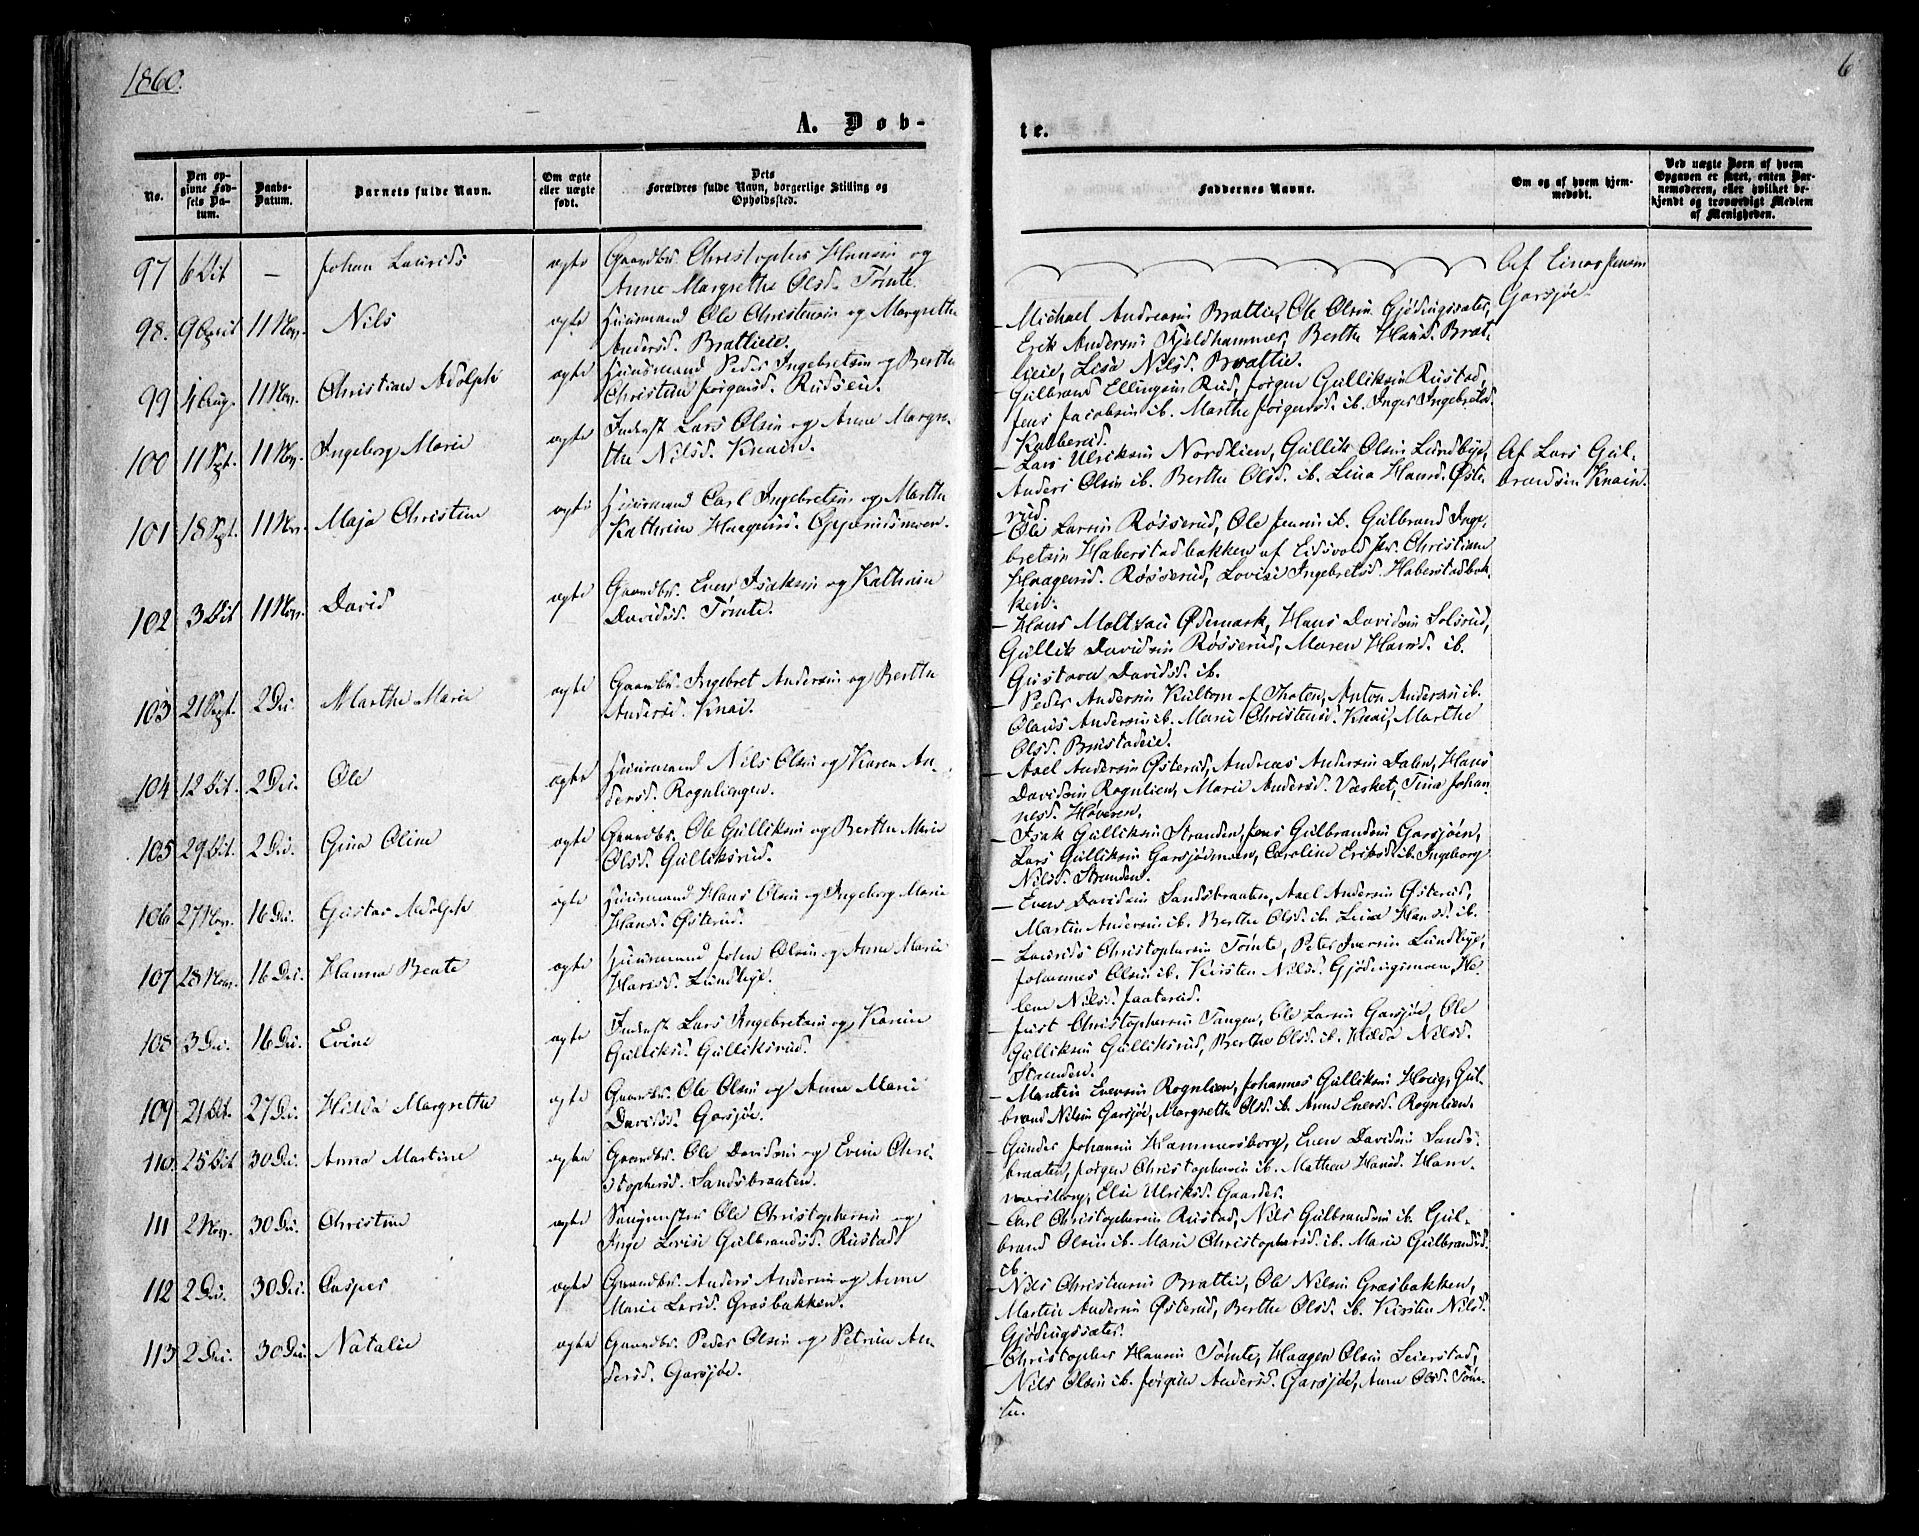 1860.
6
A. Døb-
te.
No.
Den op-
givne Fød-
sels Da-
tum.
Daabs-
Datum.
Barnets fulde Navn.
Om ægte
eller uægte
født.
Dets
Forældres fulde Navn, borgerlige Stilling og
Opholdssted.
Faddernes Navne.
Om og af hvem hjem-
medøbt.
Ved uægte Børn af hvem
Opgaven er skeet, enten Bar-
nemoderen, eller hvilket be-
kjendt og troværdigt Medlem
af Menigheden.
97 6 Oct - Johan Laurids ægte Gaardbr. Christopher Hansen og
Anne Margrethe Olsd. Tømte.
Af Einar Jensen
Garsjøe.
98. 9 April 11 Nov. Nils ægte Huusmand Ole Christensen og Margrethe
Andersd. Brattieie.
Michael Andreasen Brattie, Ole Olsen Gjødingssæter,
Erik Andersen Fjeldhammer, Berthe Hansd. Brat-
lieie, Lisa Nilsd. Brattie.
99 4 Aug. 11 Nov. Christian Adolph ægte Huusmand Peder Ingebretsen og Berthe
Christine Jørgensd. Rudseie.
Gulbrand Ellingsen Rud, Jørgen Gulliksen Rustad,
Jens Jacobsen ib. Marthe Jørgensd. ib. Inger Ingebretsd.
Kalbereid.
100 11 Sept. 11 Nov. Ingeborg Marie ægte Inderst Lars Olsen og Anne Margre-
the Nilsd. Knain.
Lars Ulriksen Nordlien, Gullik Olsen Lundbye,
Anders Olsen ib. Berthe Olsd. ib. Lina Hansd. Øste-
rud.
Af Lars Gul-
brandsen Knain.
101 18 Sept. 11 Nov. Maja Christine ægte Huusmand Carl Ingebretsen og Marthe
Kathrine Haagensd. Opperudmoen.
Ole Larsen Røsserud, Ole Jensen ib. Gulbrand Inge-
bretsen Haberstadbakken af Eidsvold Pr. Christiane
Haagensd. Røsserud, Lovise Ingebretsd. Haberstadbak-
ken.
102 3 Oct 11 Nov. David ægte Gaardbr. Even Isaksen og Kathrine
Davidsd. Tømte.
Hans Moltzau Ødemark, Hans Davidsen Solsrud,
Gullik Davidsen Røsserud, Maren Hansd. ib.
Gustava Davidsd. ib.
103 21 Sept. 2 Dec. Marthe Marie ægte Gaardbr. Ingebret Andersen og Berthe
Andersd. Knai.
Peder Andersen Kultom af Thoten, Anton Andersen ib.
Olaus Andersen ib. Marie Christensd. Knai, Marthe
Olsd. Brustadeie.
104 12 Oct. 2 Dec. Ole ægte Huusmand Nils Olsen og Karen An-
dersd. Rognliengen.
Axel Andersen Østerud, Andreas Andersen Dalen, Hans
Davidsen Rognlien, Marie Andersd. Væsket, Tina Johan-
nesd. Høveren.
105 29 Oct. 2 Dec. Gina Oline ægte Gaardbr. Ole Gulliksen og Berthe Marie
Olsd. Gulliksrud.
Isak Gulliksen Stranden, Jens Gulbrandsen Garsjøen,
Lars Gulliksen Garsjømoen, Caroline Eriksd. ib. Ingeborg
Nilsd. Stranden.
106 27 Nov. 16 Dec. Gustav Adolph ægte Huusmand Hans Olsen og Ingeborg Marie
Hansd. Østerud.
Even Davidsen Sandsbraaten, Axel Andersen Østerud,
Martin Andersen ib. Berthe Olsd. ib. Lina Hansd. ib.
107 28 Nov. 16 Dec. Hanna Beate ægte Huusmand John Olsen og Anne Marie
Hansd. Lundbye.
Laurids Christophersen Tømte, Peter Iversen Lundbye,
Johannes Olsen ib. Kirsten Nilsd. Gjødingsmoen, He-
lene Nilsd. Jaaterud.
108 3 Dec. 16 Dec. Evine ægte Inderst Lars Ingebretsen og Karine
Gulliksd. Gulliksrud.
Just Christophersen Tangen, Ole Larsen Garsjøe, Ole
Gulliksen Gulliksrud, Berthe Olsd. ib. Hilda Nilsd.
Stranden.
109 21 Oct. 27 Dec. Hilda Margrethe ægte Gaardbr. Ole Olsen og Anne Marie
Davidsd. Garsjøe.
Martin Evensen Rognlien, Johannes Gulliksen Horig, Gul-
brand Nilsen Garsjøe, Margrethe Olsd. ib. Anne Evensd. Rognlien.
110 25 Oct 30 Dec. Anna Martine ægte Gaardbr. Ole Davidsen og Evine Chri-
stophersd. Sandsbraaten.
Gunder Johansen Hammersborg, Even Davidsen Sands-
braaten, Jørgen Christophersen ib. Mathea Hansd. Ham-
mersborg, Else Ulriksd. Gaarder.
111 2 Nov. 30 Dec. Christine ægte Ole Christophersen og
Inge Lovise Gulbrandsd. Rustad.
Carl Christophersen Rustad, Nils Gulbrandsen ib. Gul-
brand Olsen ib. Marie Christophersd. ib. Marie Gulbrandsd.
ib.
112 2 Dec. 30 Dec. Casper ægte Gaardbr. Anders Andersen og Anne
Marie Larsd. Græsbakken.
Nils Christensen Brattie, Ole Nilsen Græsbakken,
Martin Andersen Østerud, Berthe Olsd. ib. Kirsten Nilsd.
Gjødingssæter.
113 2 Dec. 30 Dec. Natalie ægte Gaardbr. Peder Olsen og Petrine An-
dersd. Garsjøe.
Christopher Hansen Tømte, Haagen Olsen Seierstad,
Nils Olsen ib. Jørgine Andersd. Garsjøe, Anne Olsd. Tøm-
te.